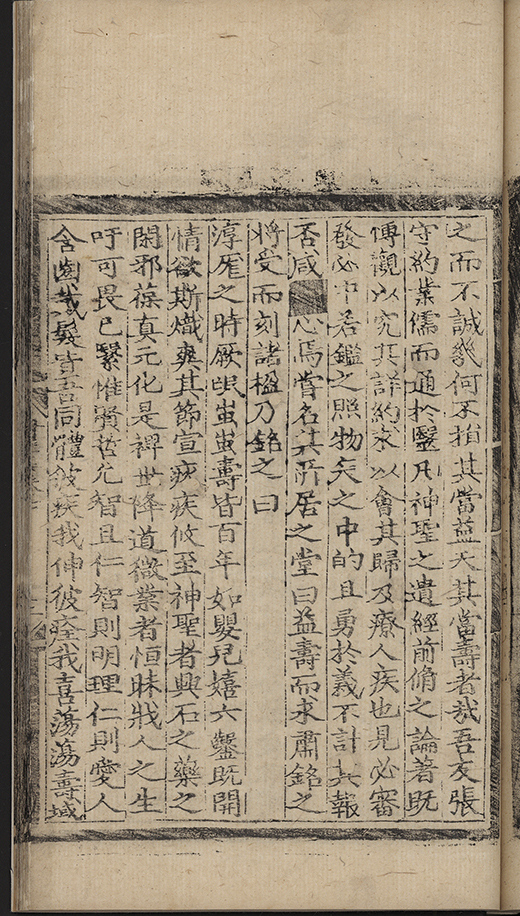 之而不誠幾何不損其當益夭其當壽者哉吾友張
守約業儒而通於醫凡神聖之遺經前脩之論著旣
博觀以究其詳約求以會其歸及療人疾也見必審
發必中若鑑之照物矢之中的且勇於義不計其報
否咸心焉嘗名其所居之堂曰益壽而求肅銘之
將受而刻諸楹乃銘之曰
淳厖之時厥氓蚩蚩壽皆百年如嬰兒嬉六鑿旣開
情欲斯熾爽其節宣疾疢攸至神聖者興石之藥之
閑邪葆真元化是裨世降道微業者恒昧戕人之生
吁可畏已繄惟賢哲允智且仁智則明理仁則愛人
含齒戴髮皆吾同體彼疾我伸彼痊我喜蕩蕩壽域